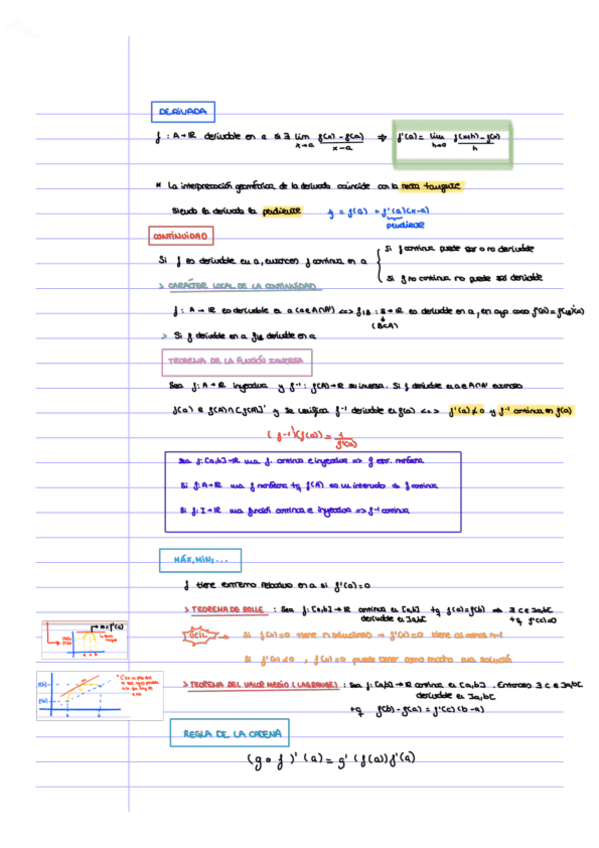 DERIVADA
f : A → ℝ derivable en a si ∃ lim x→a f(x) - f(a) / x - a ⇒ f'(a) = lim h→0 f(x+h) - f(x) / h
* La interpretación geométrica de la derivada coincide con la recta tangente
siendo la derivada la pendiente y = f(a) + f'(a)(x-a)
pendiente
CONTINUIDAD
Si f es derivable en a, entonces f continua en a
Si f continua puede ser o no derivable
Si f no continua no puede ser derivable
> CARÁCTER LOCAL DE LA CONTINUIDAD
f : A → ℝ es derivable en a (a ∈ A∩A') <=> f|B : B → ℝ es derivable en a, en cuyo caso f'(a) = f|B'(a)
(B⊂A)
> Si f derivable en a f|B derivable en a
TEOREMA DE LA FUNCIÓN INVERSA
Sea f: A → ℝ inyectiva y f⁻¹ : f(A) → ℝ su inversa. Si f derivable en a ∈ A∩A' entonces
f(a) ∈ f(A) ∩ [f(A)]' y se verifica f⁻¹ derivable en f(a) <=> f'(a) ≠ 0 y f⁻¹ continua en f(a)
(f⁻¹)'(f(a)) = 1 / f'(a)
Sea f: [a,b] → ℝ una f. continua e inyectiva => f estr. monótona
Si f: A → ℝ una f monótona tq f(A) es un intervalo => f continua
Si f: I → ℝ una función continua e inyectiva => f⁻¹ continua
MÁX, MIN, ...
f tiene extremo relativo en a si f'(a) = 0
> TEOREMA DE ROLLE : Sea f: [a,b] → ℝ continua en [a,b] tq f(a) = f(b) ⇒ ∃ c ∈ ]a,b[
derivable en ]a,b[ tq f'(c) = 0
ÚTIL Si f(x) = 0 tiene n soluciones → f'(x) = 0 tiene al menos n-1
Si f'(x) < 0 , f(x) = 0 puede tener como mucho una solución
> TEOREMA DEL VALOR MEDIO (LAGRANGE) : Sea f: [a,b] → ℝ continua en [a,b]. Entonces ∃ c ∈ ]a,b[
derivable en ]a,b[
tq f(b) - f(a) = f'(c)(b-a)
REGLA DE LA CADENA
(g ∘ f)'(a) = g'(f(a)) f'(a)